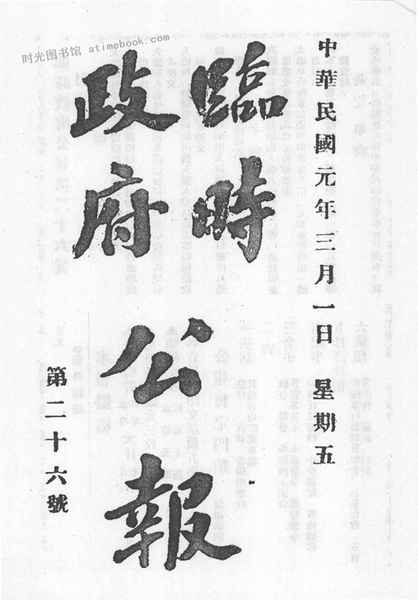 时光图书馆 atimebook.com
中華民國元年三月一日 星期五
臨時
政府
公報
第二十六號